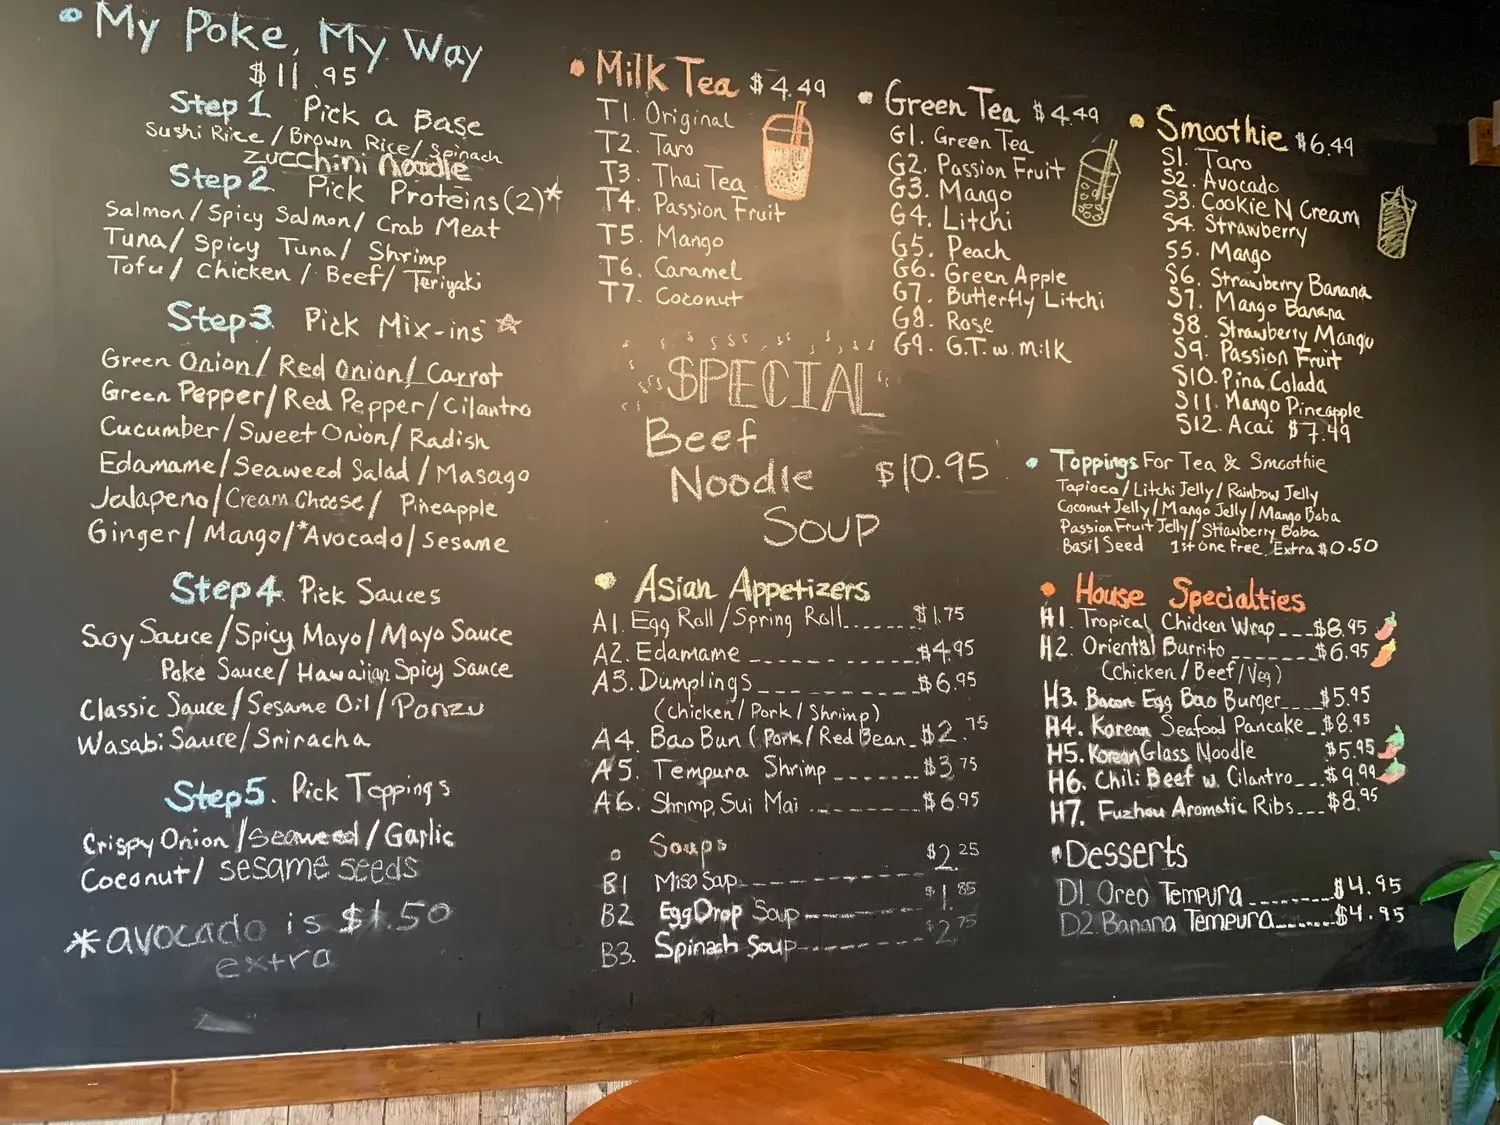 My Poke, My Way
$11.95
Step 1 Pick a Base
Sushi Rice / Brown Rice / Spinach
Zucchini Noodle
Step 2 Pick Proteins (2)*
Salmon / Spicy Salmon / Crab Meat
Tuna / Spicy Tuna / Shrimp
Tofu / Chicken / Beef / Teriyaki
Step 3 Pick Mix-ins
Green Onion / Red Onion / Carrot
Green Pepper / Red Pepper / Cilantro
Cucumber / Sweet Onion / Radish
Edamame / Seaweed Salad / Masago
Jalapeno / Cream Cheese / Pineapple
Ginger / Mango / *Avocado / Sesame
Step 4 Pick Sauces
Soy Sauce / Spicy Mayo / Mayo Sauce
Poke Sauce / Hawaiian Spicy Sauce
Classic Sauce / Sesame Oil / Ponzu
Wasabi Sauce / Sriracha
Step 5. Pick Toppings
Crispy Onion / Seaweed / Garlic
Coconut / sesame seeds
*avocado is $1.50
extra
Milk Tea $4.49
T1. Original
T2. Taro
T3. Thai Tea
T4. Passion Fruit
T5. Mango
T6. Caramel
T7. Coconut
Green Tea $4.49
G1. Green Tea
G2. Passion Fruit
G3. Mango
G4. Litchi
G5. Peach
G6. Green Apple
G7. Butterfly Litchi
G8. Rose
G9. G.T. w. milk
Smoothie $6.49
S1. Taro
S2. Avocado
S3. Cookie N Cream
S4. Strawberry
S5. Mango
S6. Strawberry Banana
S7. Mango Banana
S8. Strawberry Mango
S9. Passion Fruit
S10. Pina Colada
S11. Mango Pineapple
S12. Acai $7.49
SPECIAL
Beef
Noodle $10.95
Soup
Toppings For Tea & Smoothie
Tapioca / Litchi Jelly / Rainbow Jelly
Coconut Jelly / Mango Jelly / Mango Boba
Passion Fruit Jelly / Strawberry Boba
Basil Seed 1st one Free, Extra $0.50
Asian Appetizers
A1. Egg Roll / Spring Roll $1.75
A2. Edamame $4.95
A3. Dumplings $6.95
(Chicken / Pork / Shrimp)
A4. Bao Bun (Pork / Red Bean $2.75
A5. Tempura Shrimp $3.75
A6. Shrimp Sui Mai $6.95
Soups
B1 Miso Soup $2.25
B2 Egg Drop Soup $1.85
B3. Spinash Soup $2.75
House Specialties
H1. Tropical Chicken Wrap $8.95
H2. Oriental Burrito $6.95
(Chicken / Beef / Veg)
H3. Bacon Egg Bao Burger $5.95
H4. Korean Seafood Pancake $8.95
H5. Korean Glass Noodle $5.95
H6. Chili Beef w. Cilantro $9.99
H7. Fuzhou Aromatic Ribs $8.95
Desserts
D1. Oreo Tempura $4.95
D2. Banana Tempura $4.95